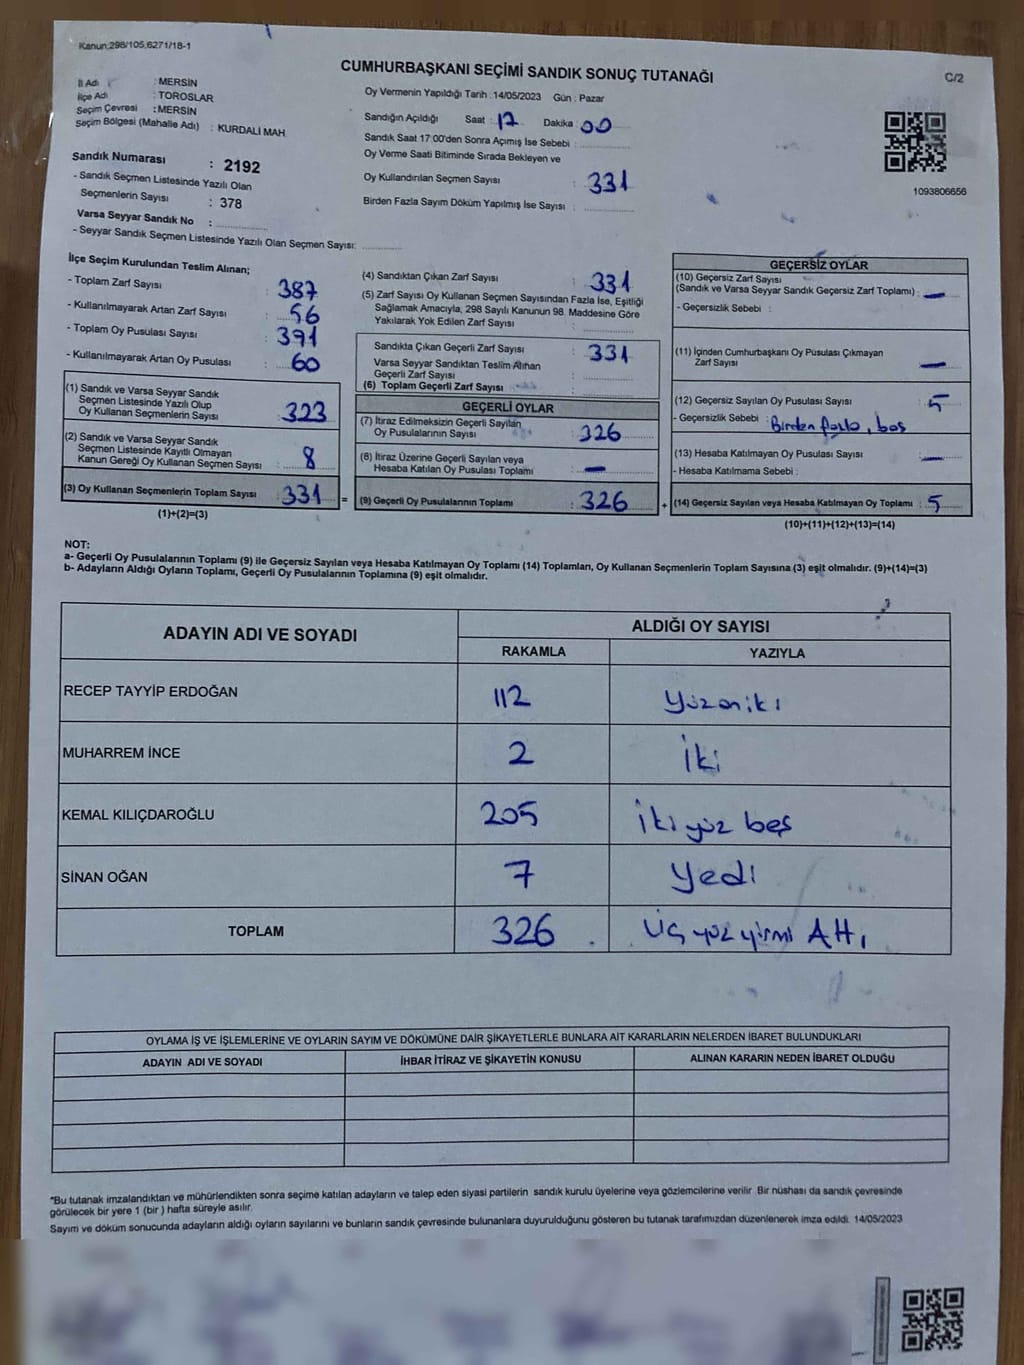 Kanun:298/105,6271/18-1
CUMHURBAŞKANI SEÇİMİ SANDIK SONUÇ TUTANAĞI
C/2
İl Adı : MERSİN
İlçe Adı : TOROSLAR
Seçim Çevresi : MERSİN
Seçim Bölgesi (Mahalle Adı) : KURDALİ MAH.
Oy Vermenin Yapıldığı Tarih : 14/05/2023 Gün : Pazar
Sandığın Açıldığı Saat : 17 Dakika : 00
Sandık Saat 17:00'den Sonra Açımış İse Sebebi :
Oy Verme Saati Bitiminde Sırada Bekleyen ve
Oy Kullandırılan Seçmen Sayısı : 331
Birden Fazla Sayım Döküm Yapılmış İse Sayısı :
1093806656
Sandık Numarası : 2192
- Sandık Seçmen Listesinde Yazılı Olan
Seçmenlerin Sayısı : 378
Varsa Seyyar Sandık No :
- Seyyar Sandık Seçmen Listesinde Yazılı Olan Seçmen Sayısı:
İlçe Seçim Kurulundan Teslim Alınan;
- Toplam Zarf Sayısı : 387
- Kullanılmayarak Artan Zarf Sayısı : 56
- Toplam Oy Pusulası Sayısı : 391
- Kullanılmayarak Artan Oy Pusulası : 60
(1) Sandık ve Varsa Seyyar Sandık
Seçmen Listesinde Yazılı Olup
Oy Kullanan Seçmenlerin Sayısı : 323
(2) Sandık ve Varsa Seyyar Sandık
Seçmen Listesinde Kayıtlı Olmayan
Kanun Gereği Oy Kullanan Seçmen Sayısı : 8
(3) Oy Kullanan Seçmenlerin Toplam Sayısı : 331 =
(1)+(2)=(3)
(4) Sandıktan Çıkan Zarf Sayısı : 331
(5) Zarf Sayısı Oy Kullanan Seçmen Sayısından Fazla İse, Eşitliği
Sağlamak Amacıyla, 298 Sayılı Kanunun 98. Maddesine Göre
Yakılarak Yok Edilen Zarf Sayısı :
Sandıkta Çıkan Geçerli Zarf Sayısı : 331
Varsa Seyyar Sandıktan Teslim Alınan
Geçerli Zarf Sayısı :
(6) Toplam Geçerli Zarf Sayısı :
GEÇERLİ OYLAR
(7) İtiraz Edilmeksizin Geçerli Sayılan
Oy Pusulalarının Sayısı : 326
(8) İtiraz Üzerine Geçerli Sayılan veya
Hesaba Katılan Oy Pusulası Toplamı : —
(9) Geçerli Oy Pusulalarının Toplamı : 326 +
GEÇERSİZ OYLAR
(10) Geçersiz Zarf Sayısı
(Sandık ve Varsa Seyyar Sandık Geçersiz Zarf Toplamı) : —
- Geçersizlik Sebebi :
(11) İçinden Cumhurbaşkanı Oy Pusulası Çıkmayan
Zarf Sayısı : —
(12) Geçersiz Sayılan Oy Pusulası Sayısı : 5
- Geçersizlik Sebebi : Birden fazla, boş
(13) Hesaba Katılmayan Oy Pusulası Sayısı : —
- Hesaba Katılmama Sebebi :
(14) Geçersiz Sayılan veya Hesaba Katılmayan Oy Toplamı : 5
(10)+(11)+(12)+(13)=(14)
NOT:
a- Geçerli Oy Pusulalarının Toplamı (9) ile Geçersiz Sayılan veya Hesaba Katılmayan Oy Toplamı (14) Toplamları, Oy Kullanan Seçmenlerin Toplam Sayısına (3) eşit olmalıdır. (9)+(14)=(3)
b- Adayların Aldığı Oyların Toplamı, Geçerli Oy Pusulalarının Toplamına (9) eşit olmalıdır.
ADAYIN ADI VE SOYADI
ALDIĞI OY SAYISI
RAKAMLA YAZIYLA
RECEP TAYYİP ERDOĞAN 112 Yüzoniki
MUHARREM İNCE 2 İki
KEMAL KILIÇDAROĞLU 205 İkiyüz beş
SİNAN OĞAN 7 Yedi
TOPLAM 326 Üç yüz yirmi Altı
OYLAMA İŞ VE İŞLEMLERİNE VE OYLARIN SAYIM VE DÖKÜMÜNE DAİR ŞİKAYETLERLE BUNLARA AİT KARARLARIN NELERDEN İBARET BULUNDUKLARI
ADAYIN ADI VE SOYADI İHBAR İTİRAZ VE ŞİKAYETİN KONUSU ALINAN KARARIN NEDEN İBARET OLDUĞU
*Bu tutanak imzalandıktan ve mühürlendikten sonra seçime katılan adayların ve talep eden siyasi partilerin sandık kurulu üyelerine veya gözlemcilerine verilir. Bir nüshası da sandık çevresinde
görülecek bir yere 1 (bir ) hafta süreyle asılır.
Sayım ve döküm sonucunda adayların aldığı oyların sayılarını ve bunların sandık çevresinde bulunanlara duyurulduğunu gösteren bu tutanak tarafımızdan düzenlenerek imza edildi. 14/05/2023